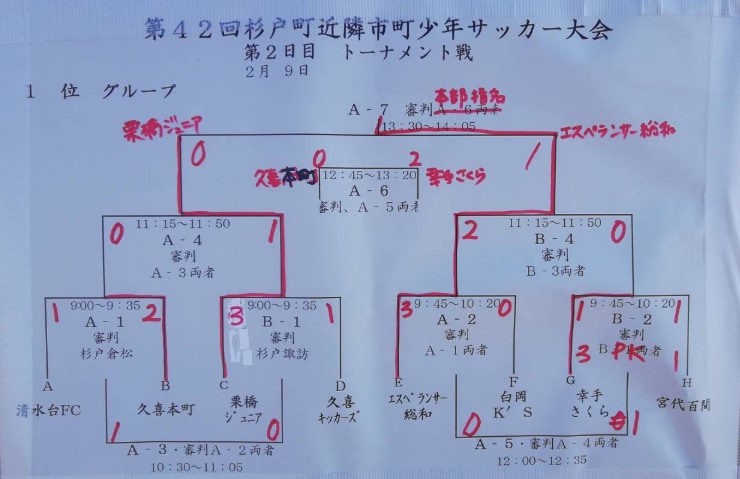 第４２回杉戸町近隣市町少年サッカー大会
第２日目　トーナメント戦
２月　９日
１　位　グループ
A－７　審判A－６両者
本部指名
13：30～14：05
栗橋ジュニア
エスペランサー総和
0
1
0
2
久喜本町
12：45～13：20
幸手さくら
A－６
審判、A－５両者
0
11：15～11：50
1
A－４
審判
A－３両者
2
11：15～11：50
0
B－４
審判
B－３両者
1
9：00～9：35
2
A－１
審判
杉戸倉松
3
9：00～9：35
1
B－１
審判
杉戸諏訪
3
9：45～10：20
0
A－２
審判
A－１両者
1
9：45～10：20
1
B－２
審判
B－1両者
3
PK
1
A
B
C
D
E
F
G
H
清水台FC
久喜本町
栗橋
ジュニア
久喜
キッカーズ
エスペランサー
総和
白岡
K'S
幸手
さくら
宮代百間
1
0
A－３・審判A－２両者
10：30～11：05
0
1
A－５・審判A－４両者
12：00～12：35